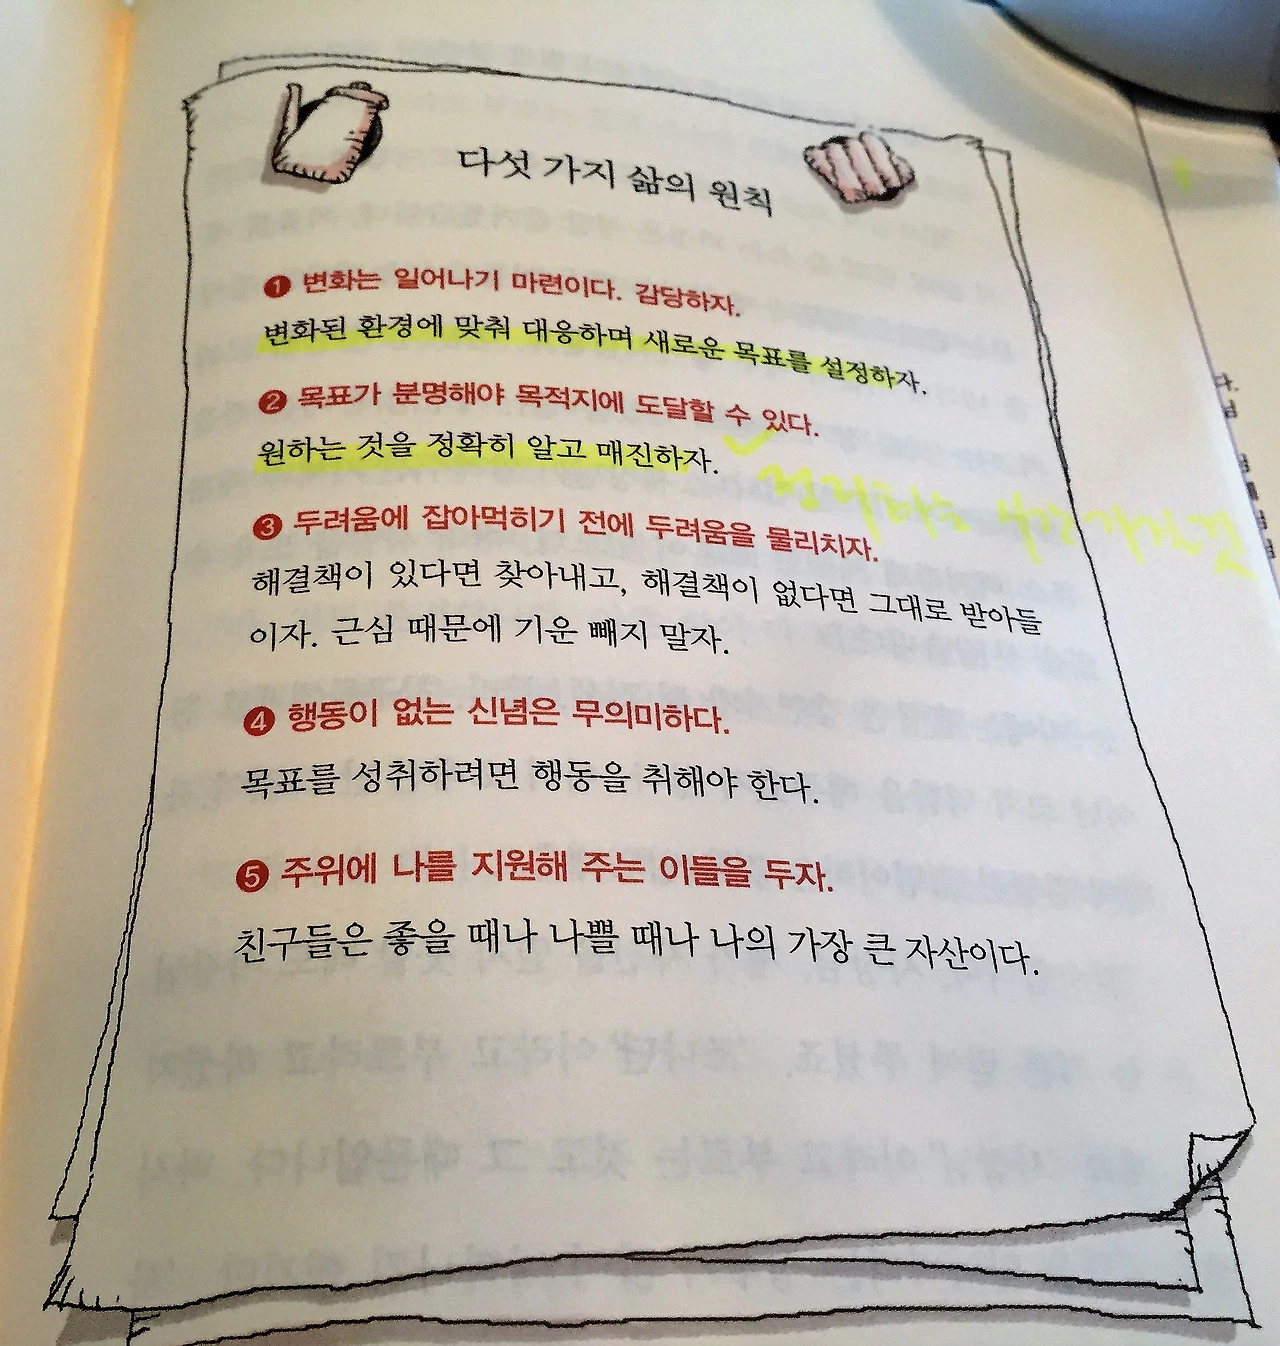 다섯 가지 삶의 원칙
❶ 변화는 일어나기 마련이다. 감당하자.
변화된 환경에 맞춰 대응하며 새로운 목표를 설정하자.
❷ 목표가 분명해야 목적지에 도달할 수 있다.
원하는 것을 정확히 알고 매진하자.
❸ 두려움에 잡아먹히기 전에 두려움을 물리치자.
해결책이 있다면 찾아내고, 해결책이 없다면 그대로 받아들
이자. 근심 때문에 기운 빼지 말자.
❹ 행동이 없는 신념은 무의미하다.
목표를 성취하려면 행동을 취해야 한다.
❺ 주위에 나를 지원해 주는 이들을 두자.
친구들은 좋을 때나 나쁠 때나 나의 가장 큰 자산이다.